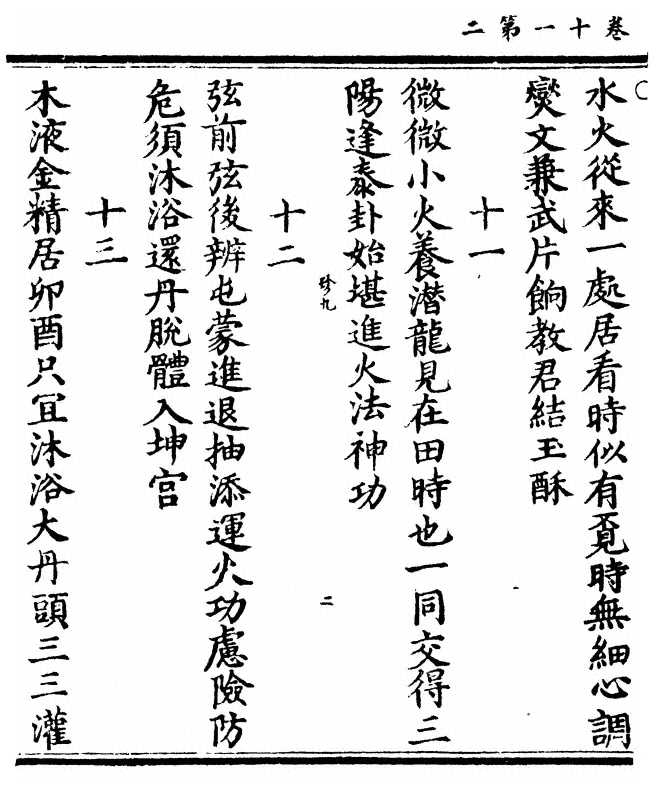 卷十一第二
水火從來一處居看時似有覔時無細心調
爕文兼武片餉教君結玉酥
十一
微微小火養潛龍見在田時也一同交得三
陽逢泰卦始堪進火法神功
珍九
二
十二
弦前弦後辨屯蒙進退抽添運火功慮險防
危須沐浴還丹脫體入坤宮
十三
木液金精居卯酉只冝沐浴大丹頭三三灌